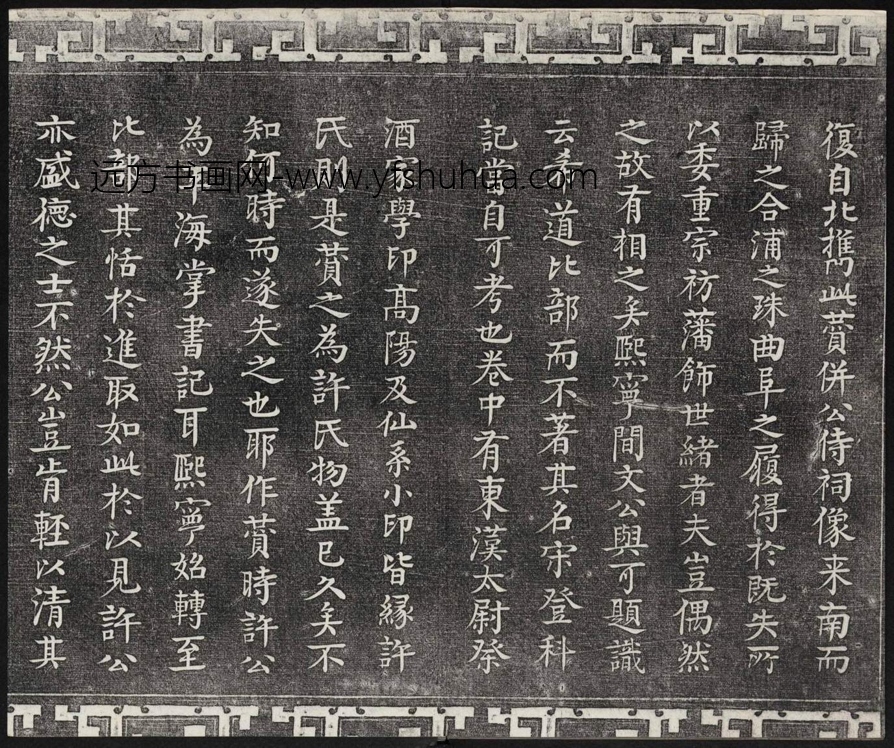 復自北携此薲併公侍祠像来南而
歸之合浦之珠曲阜之履得於既失所
以委重宗祊藩飾世緒者夫豈偶然
之故有相之矣熙寧間文公與可題識
云希道比部而不著其名宋登科
記當自可考也卷中有東漢太尉祭
酒家學印高陽及仙系小印皆縁許
氏則是薲之為許氏物盖已久矣不
知何時而遂失之也耶作薲時許公
為海掌書記耳熙寧始轉至
比部其恬於進取如此於以見許公
亦盛德之士不然公豈肯輕以清其
远方书画网-www.yfshuhua.com